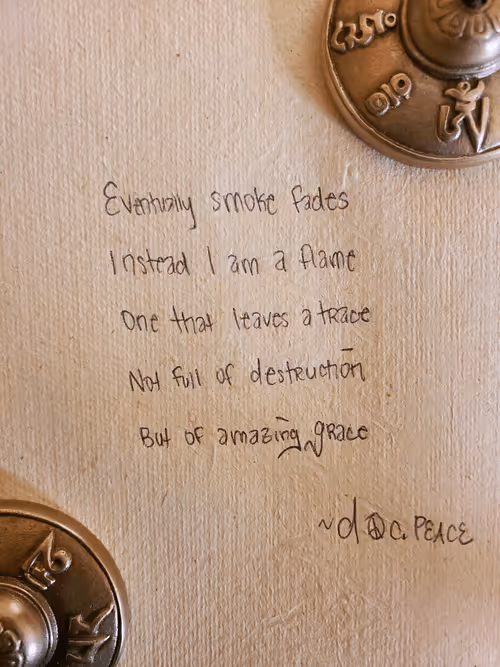 Eventually smoke fades
Instead I am a flame
One that leaves a trace
Not full of destruction
But of amazing grace
~d☮c. PEACE